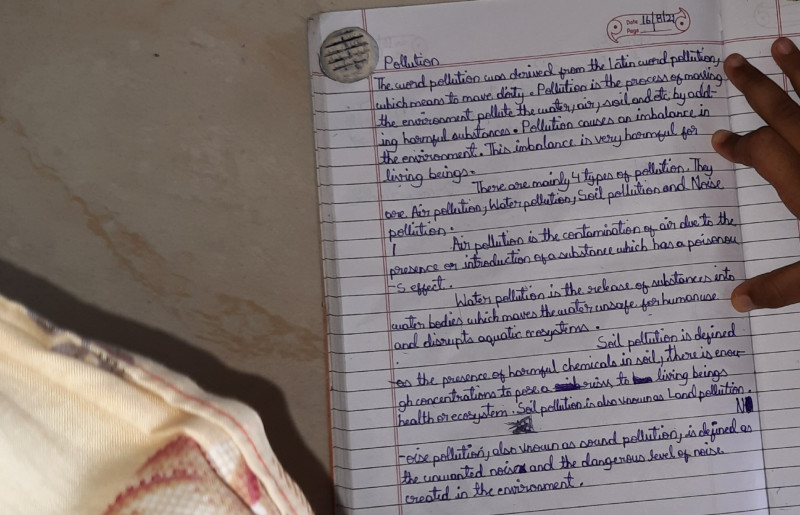 Date 16/8/21
Page
Pollution
The word pollution was derived from the Latin word pollution,
which means to make dirty. Pollution is the process of making
the environment pollute the water, air, soil and etc by add-
ing harmful substances. Pollution causes an imbalance in
the environment. This imbalance is very harmful for
living beings.
There are mainly 4 types of pollution. They
are Air pollution, Water pollution, Soil pollution and Noise
pollution.
Air pollution is the contamination of air due to the
presence or introduction of a substance which has a poisonou
-s effect.
Water pollution is the release of substances into
water bodies which makes the water unsafe for human use
and disrupts aquatic ecosystems.
Soil pollution is defined
-as the presence of harmful chemicals in soil, there is enou-
gh concentrations to pose a risk to living beings
health or ecosystem. Soil pollution is also known as Land pollution.
N
-oise pollution, also known as sound pollution, is defined as
the unwanted noise and the dangerous level of noise
created in the environment.